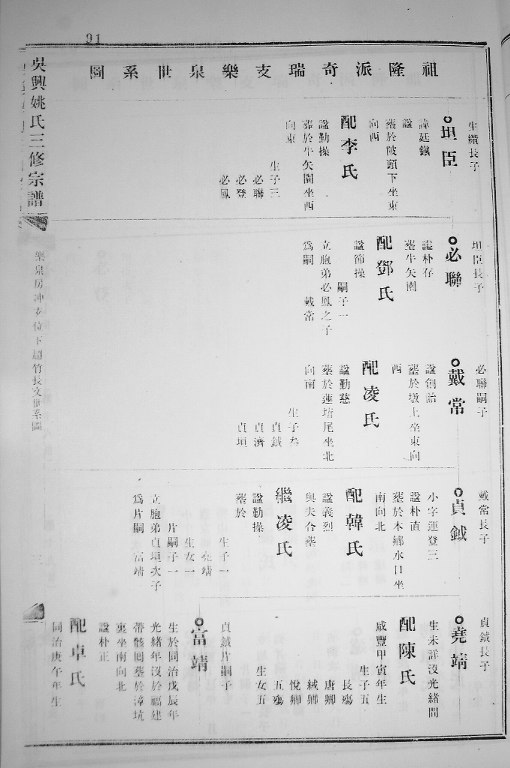 91
祖隆派奇瑞支樂泉世系圖
生纘長子
坦臣
諱廷鎮
諡
墓於陂頭下坐東
向西
配李氏
諡勤操
墓於牛矢園坐西
向東
生子三
必聯
必登
必鳳
坦臣長子
必聯
諡朴存
墓牛矢園
配鄧氏
諡節操
嗣子一
立胞弟必鳳之子
為嗣
戴常
必聯嗣子
戴常
諡創詒
墓於墩上坐東向
西
配凌氏
諡勤慈
墓於蓮塘尾坐北
向南
生子叁
貞鉞
貞濟
貞垣
戴常長子
貞鉞
小字運登三
諡朴直
墓於本鄉水口坐
南向北
配韓氏
諡義烈
與夫合墓
繼凌氏
諡勤操
墓於
生子一
堯靖
生女一
片嗣子一
立胞弟貞垣次子
為片嗣
富靖
貞鉞長子
堯靖
生未詳沒光緒間
配陳氏
咸豐甲寅年生
生子五
長殤
唐卿
絨卿
悅卿
五殤
生女五
貞鉞片嗣子
富靖
生於同治戊辰年
光緒年沒於福建
帶骸歸墓於漳坑
裏坐南向北
諡朴正
配卓氏
同治庚午年生
吳興姚氏三修宗譜
樂泉房